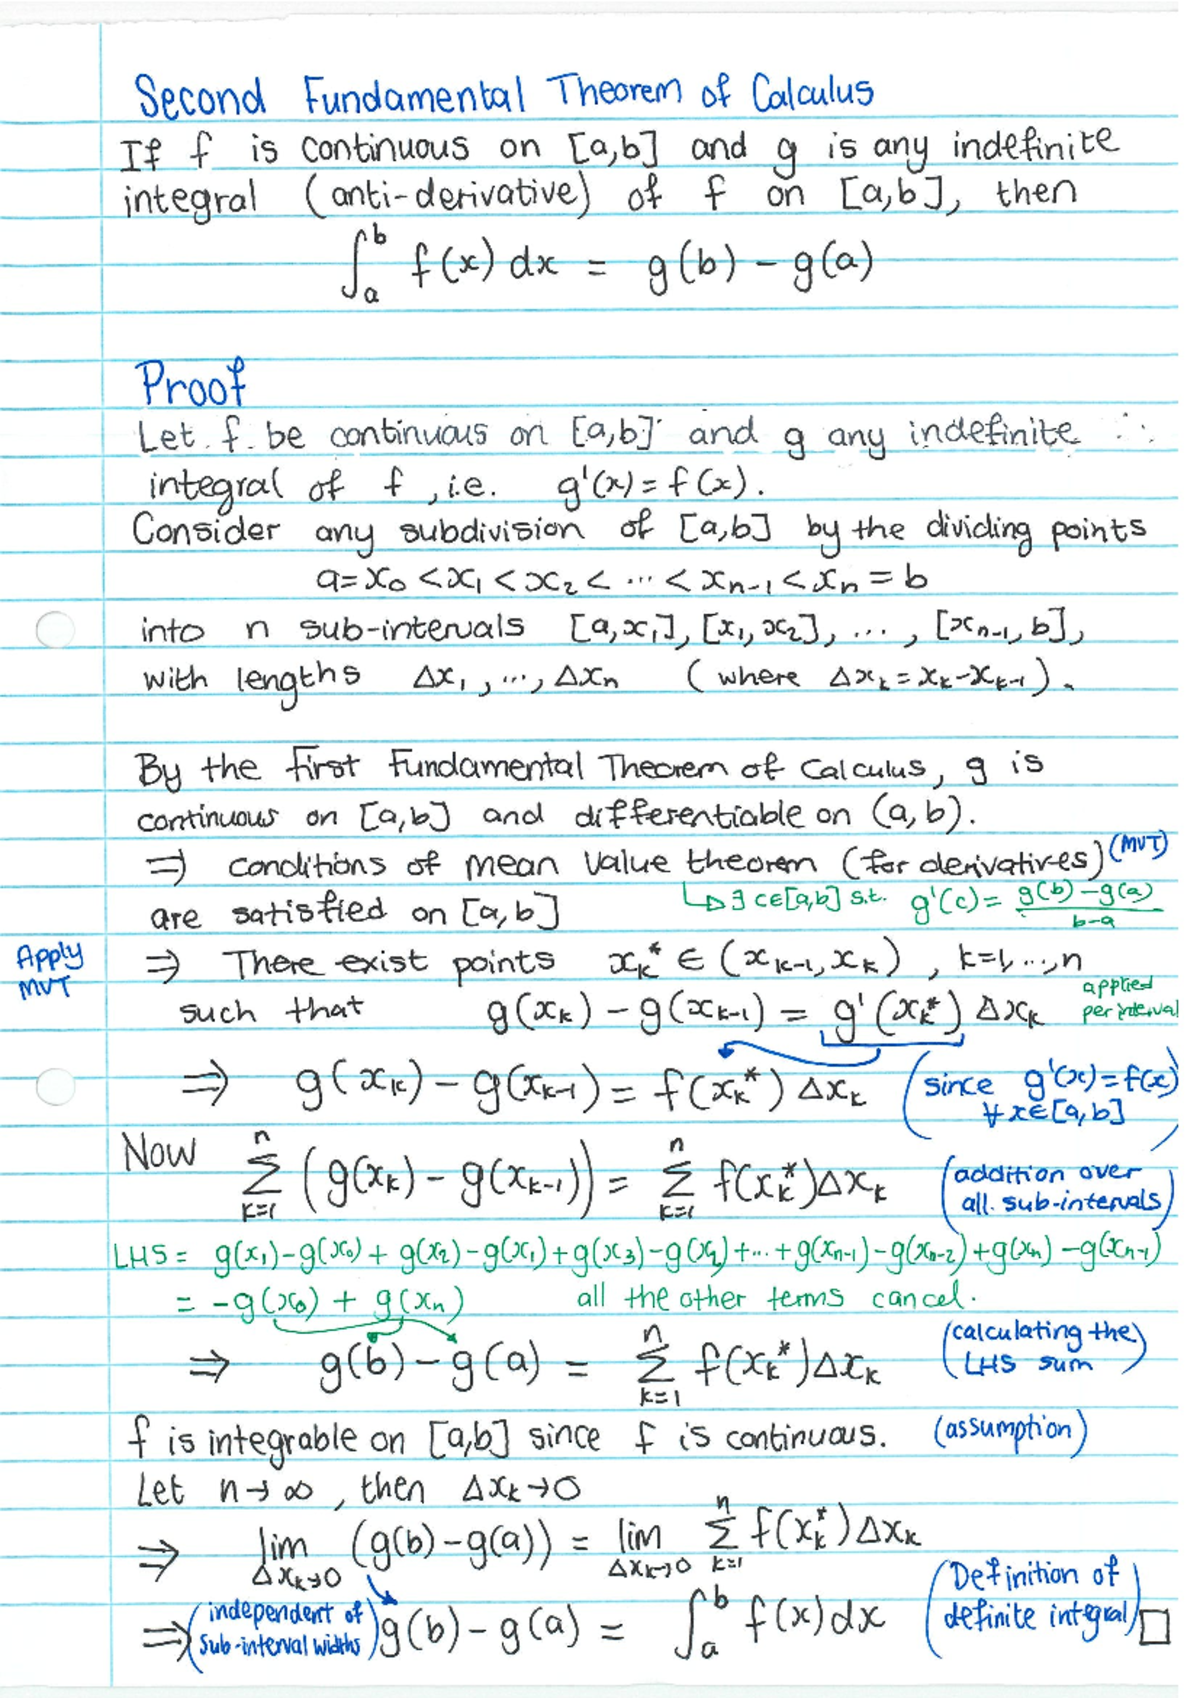 Second Fundamental Theorem of Calculus
If f is continuous on [a,b] and g is any indefinite
integral (anti-derivative) of f on [a,b], then
∫ₐᵇ f(x) dx = g(b) - g(a)
Proof
Let f be continuous on [a,b] and g any indefinite
integral of f, i.e. g'(x) = f(x).
Consider any subdivision of [a,b] by the dividing points
a = x₀ < x₁ < x₂ < ... < xₙ₋₁ < xₙ = b
into n sub-intervals [a,x₁], [x₁,x₂], ..., [xₙ₋₁,b],
with lengths Δx₁, ..., Δxₙ (where Δxₖ = xₖ-xₖ₋₁).
By the first Fundamental Theorem of Calculus, g is
continuous on [a,b] and differentiable on (a,b).
⇒ conditions of mean value theorem (for derivatives) (MVT)
are satisfied on [a,b] ↳ ∃ c∈[a,b] s.t. g'(c) = (g(b)-g(a))/(b-a)
Apply
MVT
⇒ There exist points xₖ* ∈ (xₖ₋₁, xₖ), k=1,...,n
such that g(xₖ) - g(xₖ₋₁) = g'(xₖ*) Δxₖ applied
per interval
⇒ g(xₖ) - g(xₖ₋₁) = f(xₖ*) Δxₖ (since g'(x) = f(x)
∀ x∈[a,b])
Now ∑ₖ₌₁ⁿ (g(xₖ) - g(xₖ₋₁)) = ∑ₖ₌₁ⁿ f(xₖ*)Δxₖ (addition over
all sub-intervals)
LHS = g(x₁)-g(x₀) + g(x₂)-g(x₁)+g(x₃)-g(x₂)+...+g(xₙ₋₁)-g(xₙ₋₂)+g(xₙ)-g(xₙ₋₁)
= -g(x₀) + g(xₙ) all the other terms cancel.
⇒ g(b) - g(a) = ∑ₖ₌₁ⁿ f(xₖ*)Δxₖ (calculating the
LHS sum)
f is integrable on [a,b] since f is continuous. (assumption)
Let n→∞, then Δxₖ→0
⇒ lim Δxₖ→0 (g(b)-g(a)) = lim Δxₖ→0 ∑ₖ₌₁ⁿ f(xₖ*)Δxₖ
⇒ (independent of
sub-interval widths) g(b) - g(a) = ∫ₐᵇ f(x)dx (Definition of
definite integral) □